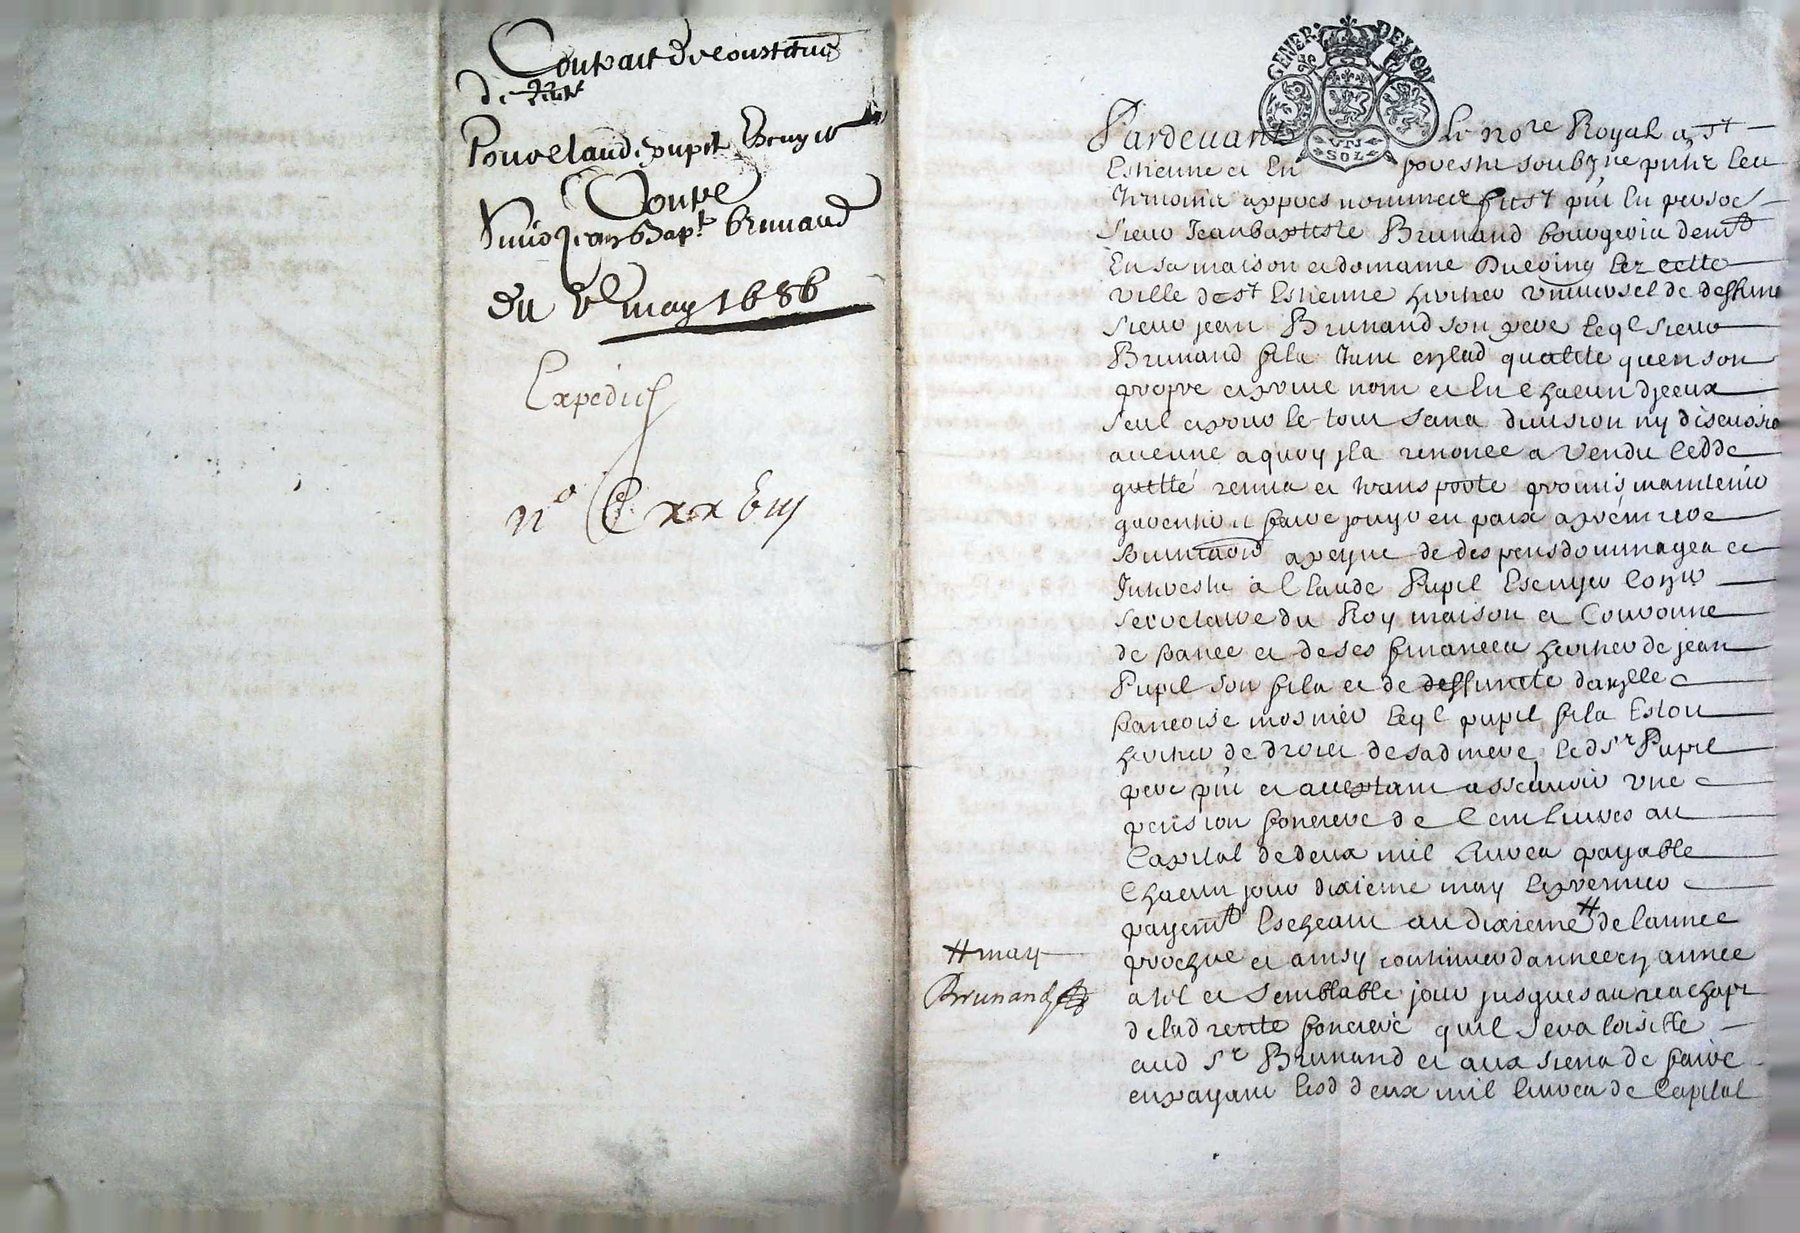 Contrait de constitu͠on
de Rente
Pour claude pupil Escuyer
Contre
Sieur Jean Bap.t brunand
du V may 1686
Expedié
n.o C xx Viij
GENER. DE LYON
UN SOL
Pardevant le no.re Royal a S.t
Estienne et En forestz soubz.ne p͠nt les
tesmoins appres nommez fust p͠nt en perso͠e
Sieur Jean baptiste Brunand bourgeois demt
En sa maison et domaine lez cette
ville de S.t Estienne heritier universel de deffunt
sieur jean Brunand son pere leql sieur
Brunand fils tant en lad quallité quen son
propre et privé nom et En chacun djceux
seul et pour le tout sans division ny discussion
aucune a quoy jla renoncé a vendu cedde
quitté remis et transporté promis maintenir
garentir et faire jouyr en paix
a peyne de despens dommages et
Interestz à Claude Pupil Escuyer con.er
secretaire du Roy maison et Couronne
de france et de ses finances heritier de jean
Pupil son fils et de deffuncte da͠zlle
francoise mosnier leql pupil fils Estoit
heritier de droict de sad mere, led S.r Pupil
pere p͠nt et acceptant assavoir une
pension fonciere de Cent livres au
Capital de deux mil livres payable
Chacun jour dixieme may le premier
payemt Escheant au dixieme # de lannee
prochne et ainsy continuer dannee en annee
a tel et semblable jour jusques au reachapt
de lad rente fonciere quil sera loisible
aud S.r Brunand et aux siens de faire
en payant lesd deux mil livres de Capital
# may
Brunand